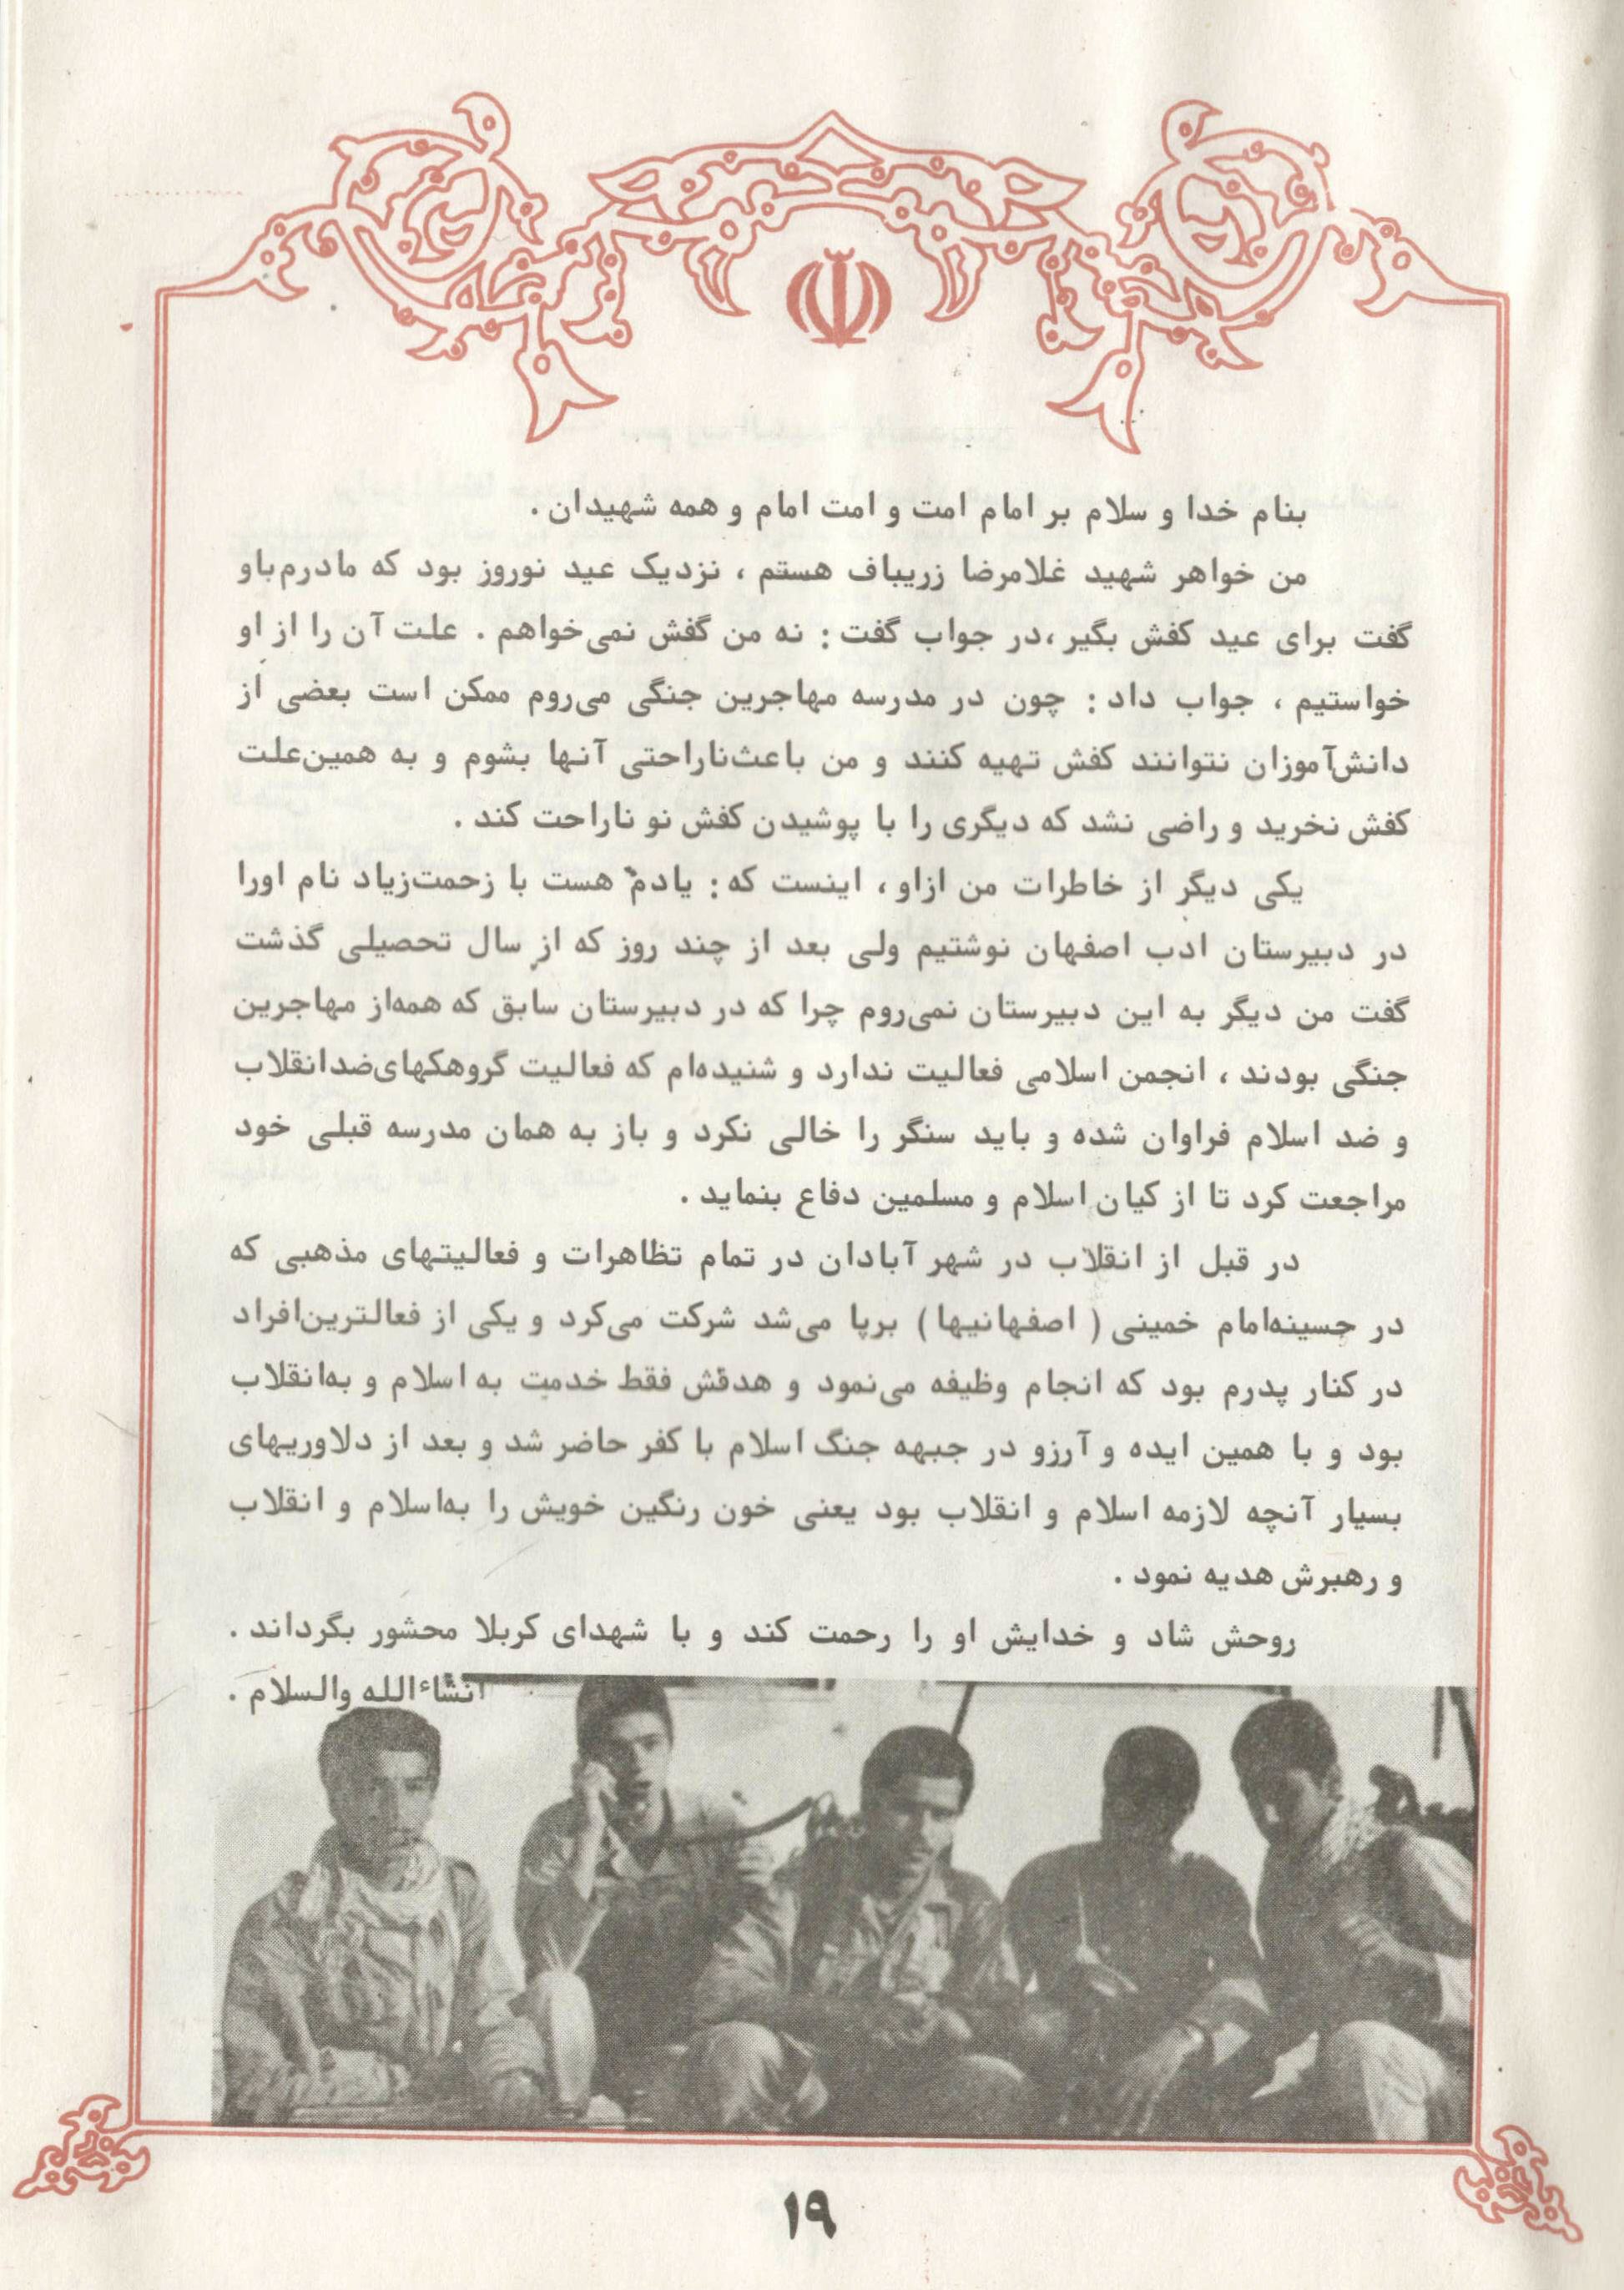 بنام خدا و سلام بر امام امت و امت امام و همه شهیدان .
من خواهر شهید غلامرضا زریباف هستم ، نزدیک عید نوروز بود که مادرم باو
گفت برای عید کفش بگیر ،در جواب گفت : نه من گفش نمی‌خواهم . علت آن را از او
خواستیم ، جواب داد : چون در مدرسه مهاجرین جنگی می‌روم ممکن است بعضی از
دانش‌آموزان نتوانند کفش تهیه کنند و من باعث‌ناراحتی آنها بشوم و به همین‌علت
کفش نخرید و راضی نشد که دیگری را با پوشیدن کفش نو ناراحت کند .
یکی دیگر از خاطرات من ازاو ، اینست که : یادم هست با زحمت‌زیاد نام اورا
در دبیرستان ادب اصفهان نوشتیم ولی بعد از چند روز که از سال تحصیلی گذشت
گفت من دیگر به این دبیرستان نمی‌روم چرا که در دبیرستان سابق که همه‌از مهاجرین
جنگی بودند ، انجمن اسلامی فعالیت ندارد و شنیده‌ام که فعالیت گروهکهای‌ضدانقلاب
و ضد اسلام فراوان شده و باید سنگر را خالی نکرد و باز به همان مدرسه قبلی خود
مراجعت کرد تا از کیان اسلام و مسلمین دفاع بنماید .
در قبل از انقلاب در شهر آبادان در تمام تظاهرات و فعالیتهای مذهبی که
در حسینه‌امام خمینی ( اصفهانیها ) برپا می‌شد شرکت می‌کرد و یکی از فعالترین‌افراد
در کنار پدرم بود که انجام وظیفه می‌نمود و هدقش فقط خدمت به اسلام و به‌انقلاب
بود و با همین ایده و آرزو در جبهه جنگ اسلام با کفر حاضر شد و بعد از دلاوریهای
بسیار آنچه لازمه اسلام و انقلاب بود یعنی خون رنگین خویش را به‌اسلام و انقلاب
و رهبرش هدیه نمود .
روحش شاد و خدایش او را رحمت کند و با شهدای کربلا محشور بگرداند .
انشاءالله والسلام .
۱۹